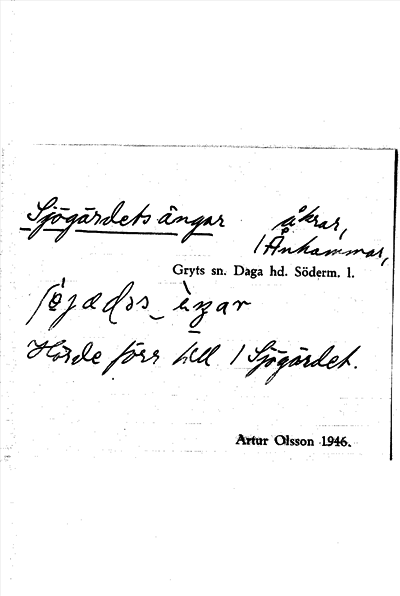 Sjögärdets ängar åkrar,
/ Änhammar,
Gryts sn. Daga hd. Söderm. l.
Hörde förr till / Sjögärdet.
Artur Olsson 1946.